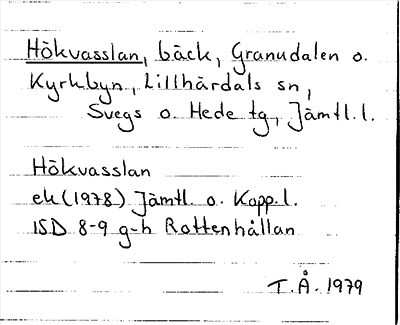 Hökvasslan, bäck, Granudalen o.
Kyrkbyn, Lillhärdals sn,
Svegs o. Hede tg, Jämtl. l.
Hökvasslan
ek (1978) Jämtl. o. Kopp. l.
15D 8-9 g-h Rottenhållan
T.Å. 1979